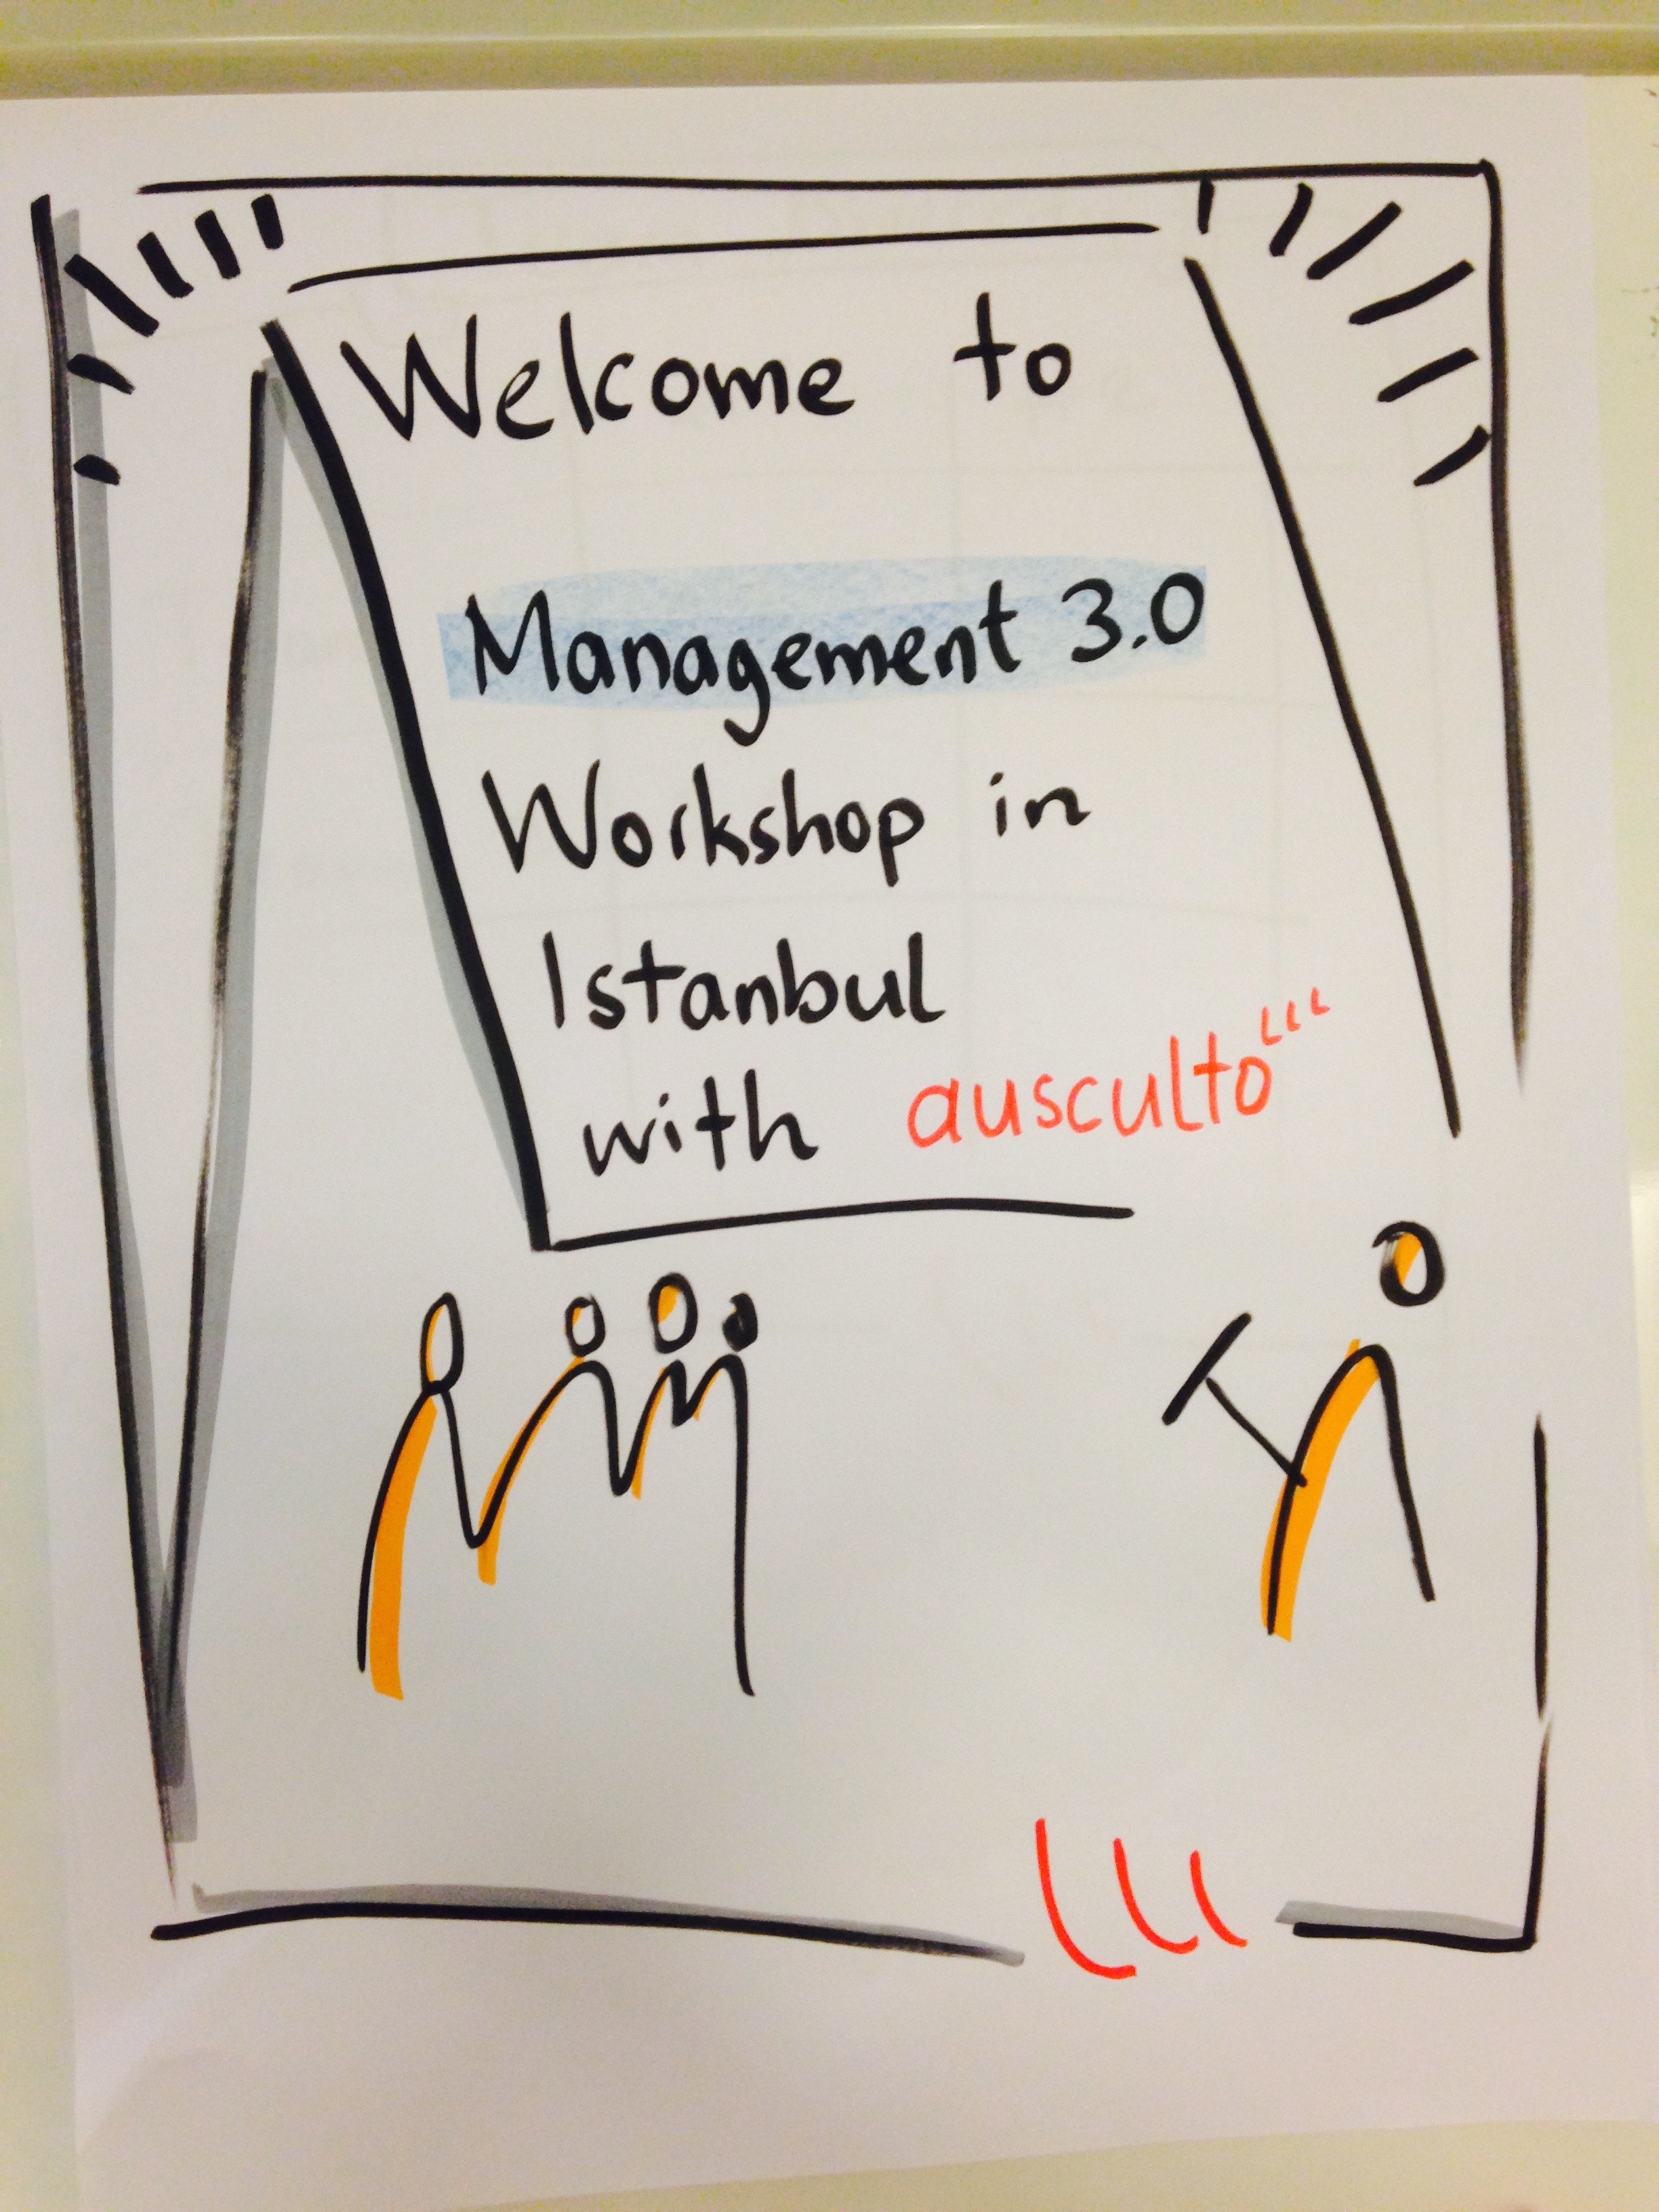 Welcome to
Management 3.0
Workshop in
Istanbul
with ausculto